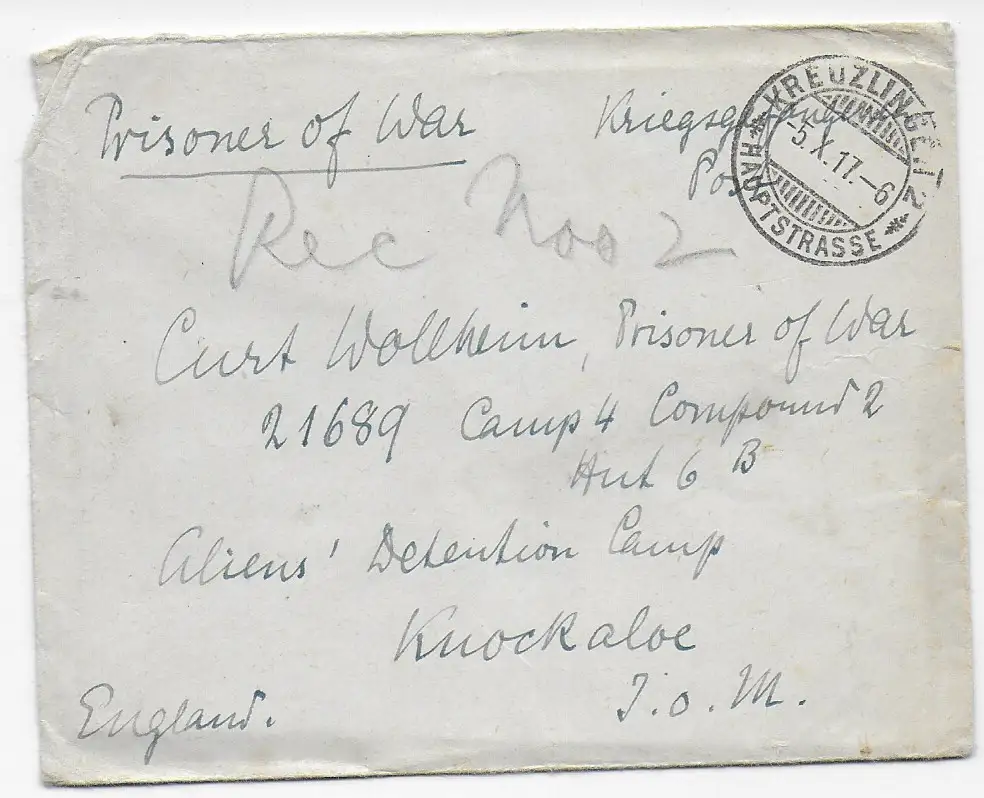 Prisoner of War Kriegsgefang
Post
KREUZLINGEN 2
-5.X.17.-6
HAUPTSTRASSE
Rec Nov 2
Curt Wollheim, Prisoner of War
21689 Camp 4 Compound 2
Hut 6 B
Aliens' Detention Camp
Knockaloe
I.o.M.
England.